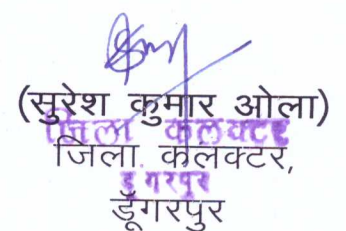 (सुरेश कुमार ओला)
जिला कलक्टर
जिला कलक्टर,
डूंगरपुर
डूँगरपुर